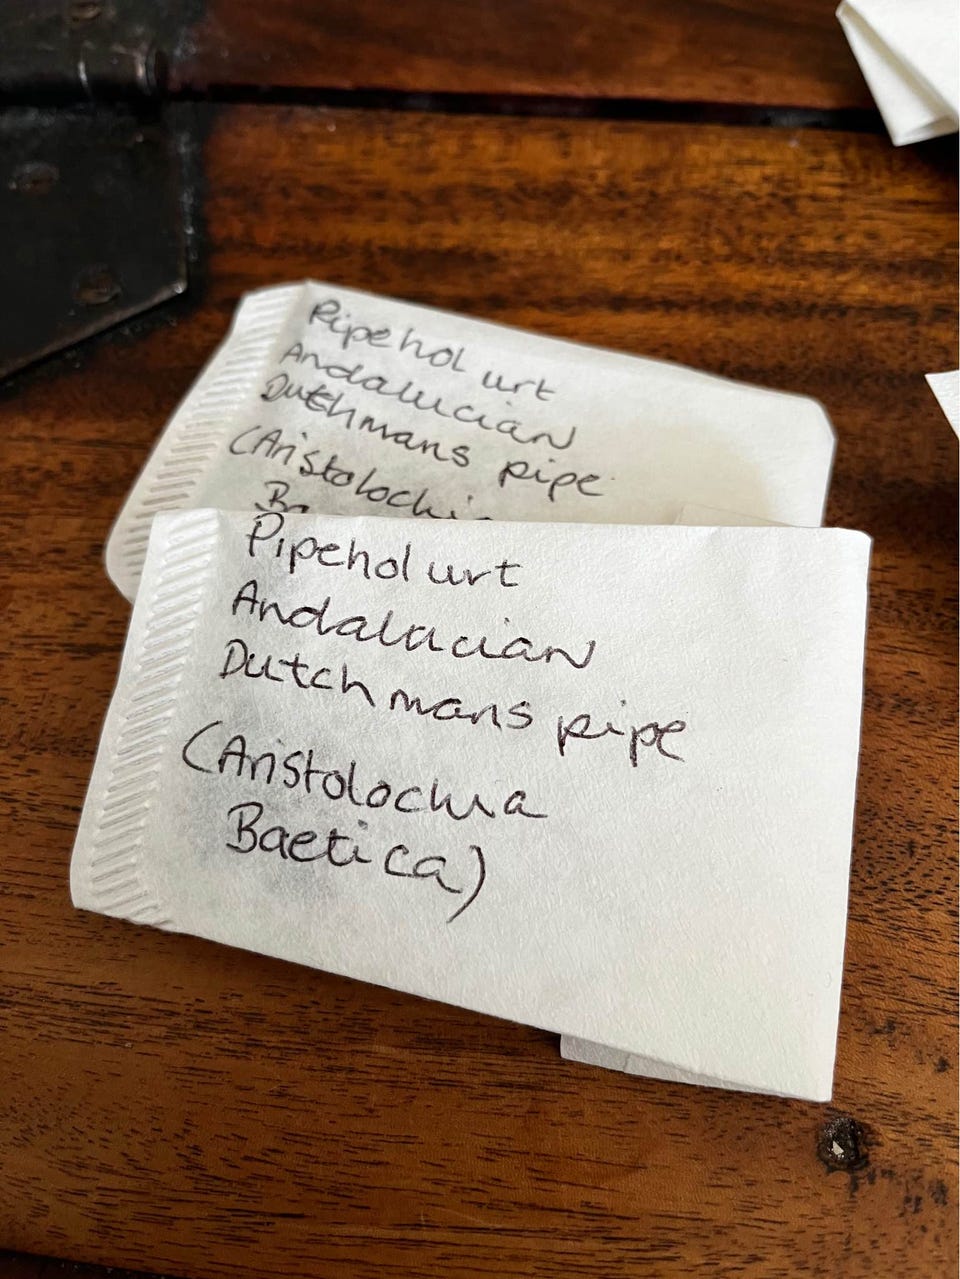 Pipehol urt
Andalucian
Dutchmans pipe
(Aristolochi
Ba
Pipehol urt
Andalucian
Dutchmans pipe
(Aristolochia
Baetica)